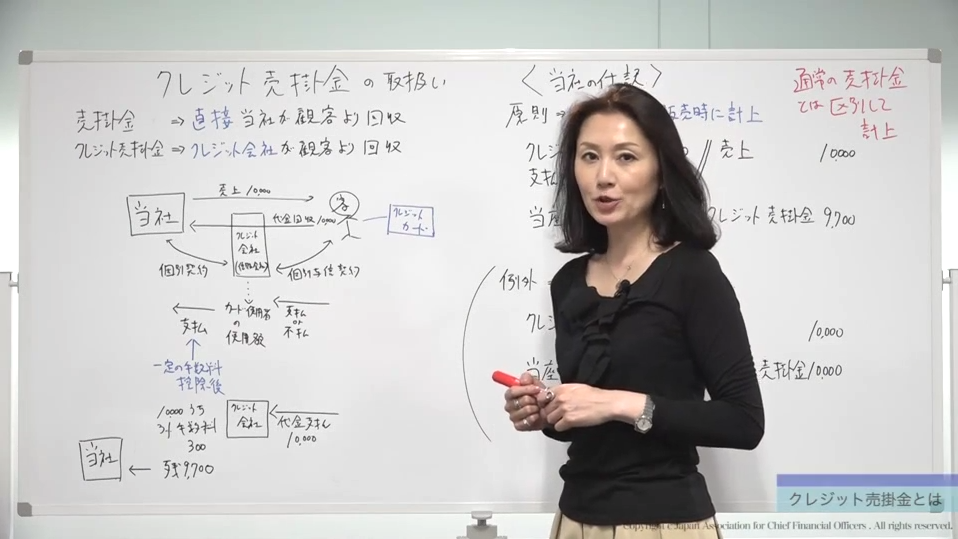 クレジット売掛金の取扱い
売掛金 ⇒ 直接 当社が顧客より回収
クレジット売掛金 ⇒ クレジット会社が顧客より回収
売上 10,000
当社
客
代金回収 10,000
クレジット
カード
クレジット
会社
個別契約
カード使用者
の
使用額
支払
or
不払
支払
一定の手数料
控除後
10,000 うち
3% 手数料
300
クレジット
会社
代金支払
10,000
当社
残 9,700
〈当社の仕訳〉
原則 ⇒
販売時に計上
クレジ
// 売上 10,000
支払
当座
クレジット売掛金 9,700
例外
クレジ
10,000
当座
売掛金 10,000
通常の売掛金
とは区別して
計上
クレジット売掛金とは
Copyright c Japan Association for Chief Financial Officers . All rights reserved.